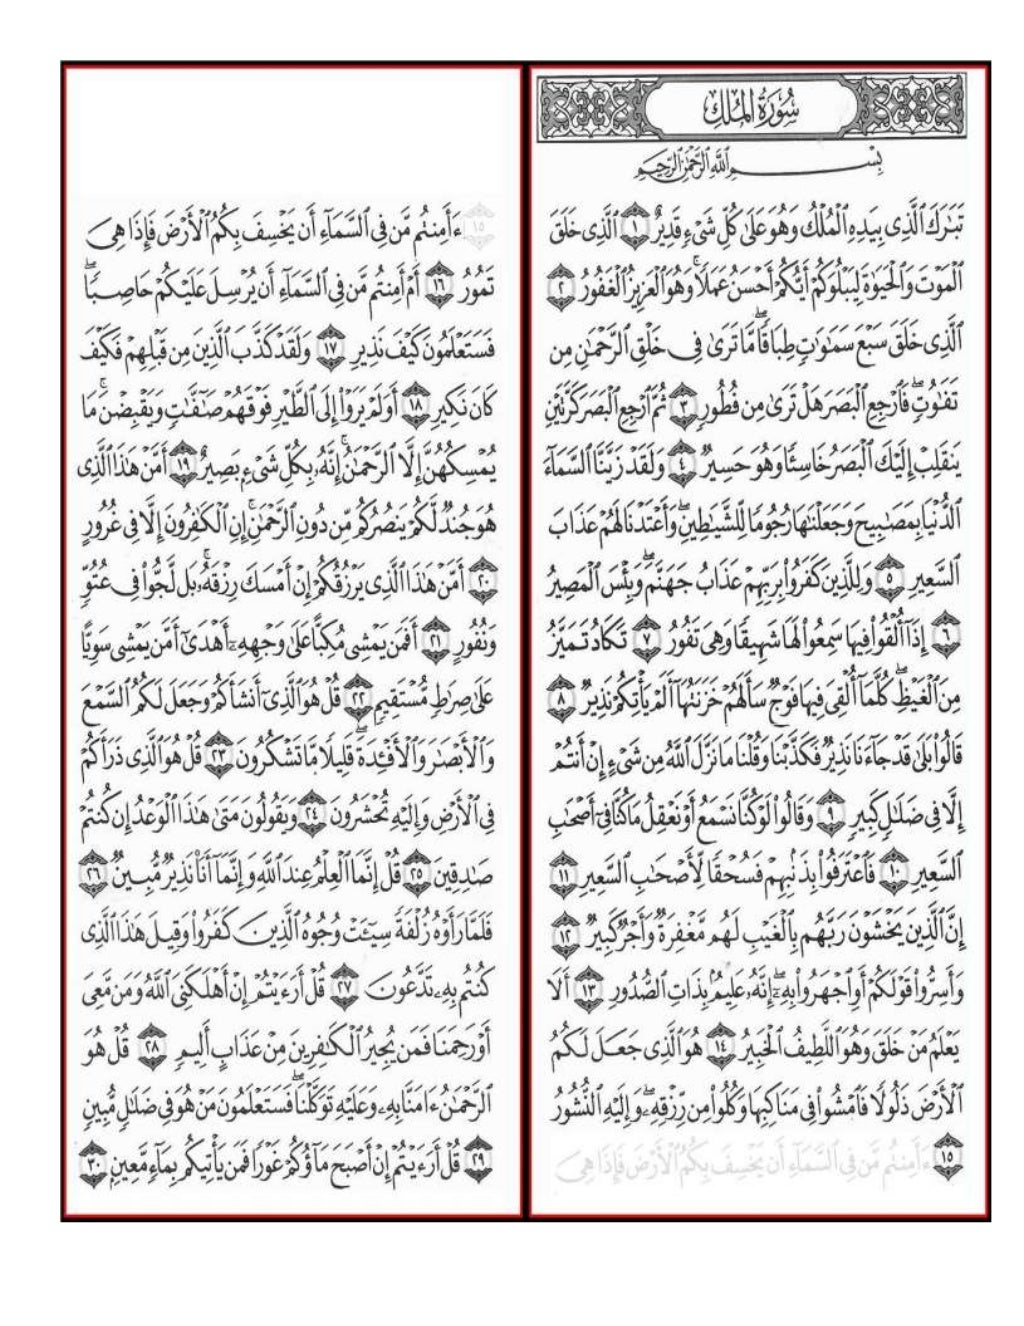 سُورَةُ الْمُلْكِ
بِسْمِ ٱللَّهِ ٱلرَّحْمَٰنِ ٱلرَّحِيمِ
تَبَٰرَكَ ٱلَّذِى بِيَدِهِ ٱلْمُلْكُ وَهُوَ عَلَىٰ كُلِّ شَىْءٍ قَدِيرٌ ١ ٱلَّذِى خَلَقَ
ٱلْمَوْتَ وَٱلْحَيَوٰةَ لِيَبْلُوَكُمْ أَيُّكُمْ أَحْسَنُ عَمَلًا ۚ وَهُوَ ٱلْعَزِيزُ ٱلْغَفُورُ ٢
ٱلَّذِى خَلَقَ سَبْعَ سَمَٰوَٰتٍ طِبَاقًا ۖ مَّا تَرَىٰ فِى خَلْقِ ٱلرَّحْمَٰنِ مِن
تَفَٰوُتٍ ۖ فَٱرْجِعِ ٱلْبَصَرَ هَلْ تَرَىٰ مِن فُطُورٍ ٣ ثُمَّ ٱرْجِعِ ٱلْبَصَرَ كَرَّتَيْنِ
يَنقَلِبْ إِلَيْكَ ٱلْبَصَرُ خَاسِئًا وَهُوَ حَسِيرٌ ٤ وَلَقَدْ زَيَّنَّا ٱلسَّمَآءَ
ٱلدُّنْيَا بِمَصَٰبِيحَ وَجَعَلْنَٰهَا رُجُومًا لِّلشَّيَٰطِينِ ۖ وَأَعْتَدْنَا لَهُمْ عَذَابَ
ٱلسَّعِيرِ ٥ وَلِلَّذِينَ كَفَرُوا۟ بِرَبِّهِمْ عَذَابُ جَهَنَّمَ ۖ وَبِئْسَ ٱلْمَصِيرُ
٦ إِذَآ أُلْقُوا۟ فِيهَا سَمِعُوا۟ لَهَا شَهِيقًا وَهِىَ تَفُورُ ٧ تَكَادُ تَمَيَّزُ
مِنَ ٱلْغَيْظِ ۖ كُلَّمَآ أُلْقِىَ فِيهَا فَوْجٌ سَأَلَهُمْ خَزَنَتُهَآ أَلَمْ يَأْتِكُمْ نَذِيرٌ ٨
قَالُوا۟ بَلَىٰ قَدْ جَآءَنَا نَذِيرٌ فَكَذَّبْنَا وَقُلْنَا مَا نَزَّلَ ٱللَّهُ مِن شَىْءٍ إِنْ أَنتُمْ
إِلَّا فِى ضَلَٰلٍ كَبِيرٍ ٩ وَقَالُوا۟ لَوْ كُنَّا نَسْمَعُ أَوْ نَعْقِلُ مَا كُنَّا فِىٓ أَصْحَٰبِ
ٱلسَّعِيرِ ١٠ فَٱعْتَرَفُوا۟ بِذَنۢبِهِمْ فَسُحْقًا لِّأَصْحَٰبِ ٱلسَّعِيرِ ١١
إِنَّ ٱلَّذِينَ يَخْشَوْنَ رَبَّهُم بِٱلْغَيْبِ لَهُم مَّغْفِرَةٌ وَأَجْرٌ كَبِيرٌ ١٢
وَأَسِرُّوا۟ قَوْلَكُمْ أَوِ ٱجْهَرُوا۟ بِهِۦٓ ۖ إِنَّهُۥ عَلِيمٌۢ بِذَاتِ ٱلصُّدُورِ ١٣ أَلَا
يَعْلَمُ مَنْ خَلَقَ وَهُوَ ٱللَّطِيفُ ٱلْخَبِيرُ ١٤ هُوَ ٱلَّذِى جَعَلَ لَكُمُ
ٱلْأَرْضَ ذَلُولًا فَٱمْشُوا۟ فِى مَنَاكِبِهَا وَكُلُوا۟ مِن رِّزْقِهِۦ ۖ وَإِلَيْهِ ٱلنُّشُورُ
١٥ ءَأَمِنتُم مَّن فِى ٱلسَّمَآءِ أَن يَخْسِفَ بِكُمُ ٱلْأَرْضَ فَإِذَا هِىَ
١٥ ءَأَمِنتُم مَّن فِى ٱلسَّمَآءِ أَن يَخْسِفَ بِكُمُ ٱلْأَرْضَ فَإِذَا هِىَ
تَمُورُ ١٦ أَمْ أَمِنتُم مَّن فِى ٱلسَّمَآءِ أَن يُرْسِلَ عَلَيْكُمْ حَاصِبًا ۖ
فَسَتَعْلَمُونَ كَيْفَ نَذِيرِ ١٧ وَلَقَدْ كَذَّبَ ٱلَّذِينَ مِن قَبْلِهِمْ فَكَيْفَ
كَانَ نَكِيرِ ١٨ أَوَلَمْ يَرَوْا۟ إِلَى ٱلطَّيْرِ فَوْقَهُمْ صَٰٓفَّٰتٍ وَيَقْبِضْنَ ۚ مَا
يُمْسِكُهُنَّ إِلَّا ٱلرَّحْمَٰنُ ۚ إِنَّهُۥ بِكُلِّ شَىْءٍۭ بَصِيرٌ ١٩ أَمَّنْ هَٰذَا ٱلَّذِى
هُوَ جُندٌ لَّكُمْ يَنصُرُكُم مِّن دُونِ ٱلرَّحْمَٰنِ ۚ إِنِ ٱلْكَٰفِرُونَ إِلَّا فِى غُرُورٍ
٢٠ أَمَّنْ هَٰذَا ٱلَّذِى يَرْزُقُكُمْ إِنْ أَمْسَكَ رِزْقَهُۥ ۚ بَل لَّجُّوا۟ فِى عُتُوٍّ
وَنُفُورٍ ٢١ أَفَمَن يَمْشِى مُكِبًّا عَلَىٰ وَجْهِهِۦٓ أَهْدَىٰٓ أَمَّن يَمْشِى سَوِيًّا
عَلَىٰ صِرَٰطٍ مُّسْتَقِيمٍ ٢٢ قُلْ هُوَ ٱلَّذِىٓ أَنشَأَكُمْ وَجَعَلَ لَكُمُ ٱلسَّمْعَ
وَٱلْأَبْصَٰرَ وَٱلْأَفْـِٔدَةَ ۖ قَلِيلًا مَّا تَشْكُرُونَ ٢٣ قُلْ هُوَ ٱلَّذِى ذَرَأَكُمْ
فِى ٱلْأَرْضِ وَإِلَيْهِ تُحْشَرُونَ ٢٤ وَيَقُولُونَ مَتَىٰ هَٰذَا ٱلْوَعْدُ إِن كُنتُمْ
صَٰدِقِينَ ٢٥ قُلْ إِنَّمَا ٱلْعِلْمُ عِندَ ٱللَّهِ وَإِنَّمَآ أَنَا۠ نَذِيرٌ مُّبِينٌ ٢٦
فَلَمَّا رَأَوْهُ زُلْفَةً سِيٓـَٔتْ وُجُوهُ ٱلَّذِينَ كَفَرُوا۟ وَقِيلَ هَٰذَا ٱلَّذِى
كُنتُم بِهِۦ تَدَّعُونَ ٢٧ قُلْ أَرَءَيْتُمْ إِنْ أَهْلَكَنِىَ ٱللَّهُ وَمَن مَّعِىَ
أَوْ رَحِمَنَا فَمَن يُجِيرُ ٱلْكَٰفِرِينَ مِنْ عَذَابٍ أَلِيمٍ ٢٨ قُلْ هُوَ
ٱلرَّحْمَٰنُ ءَامَنَّا بِهِۦ وَعَلَيْهِ تَوَكَّلْنَا ۖ فَسَتَعْلَمُونَ مَنْ هُوَ فِى ضَلَٰلٍ مُّبِينٍ
٢٩ قُلْ أَرَءَيْتُمْ إِنْ أَصْبَحَ مَآؤُكُمْ غَوْرًا فَمَن يَأْتِيكُم بِمَآءٍ مَّعِينٍۭ ٣٠